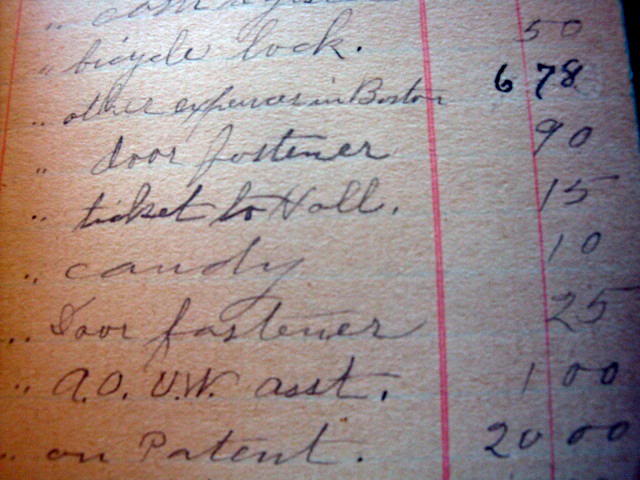 " 50
" bicycle lock.
" other expences in Boston 6 78
" door fastener 90
" ticket to Hall. 15
" candy 10
" Door fastener 25
" A.O.U.W. asst. 1 00
" on Patent. 20 00